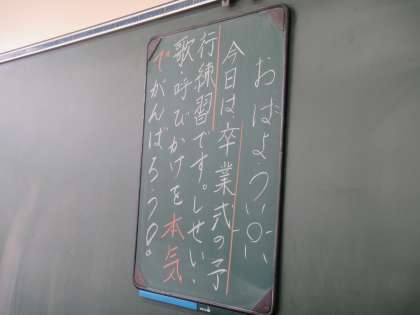 おはよう
今日は、卒業式の予
行練習です。しせい・
歌・呼びかけを本気
でがんばろう。